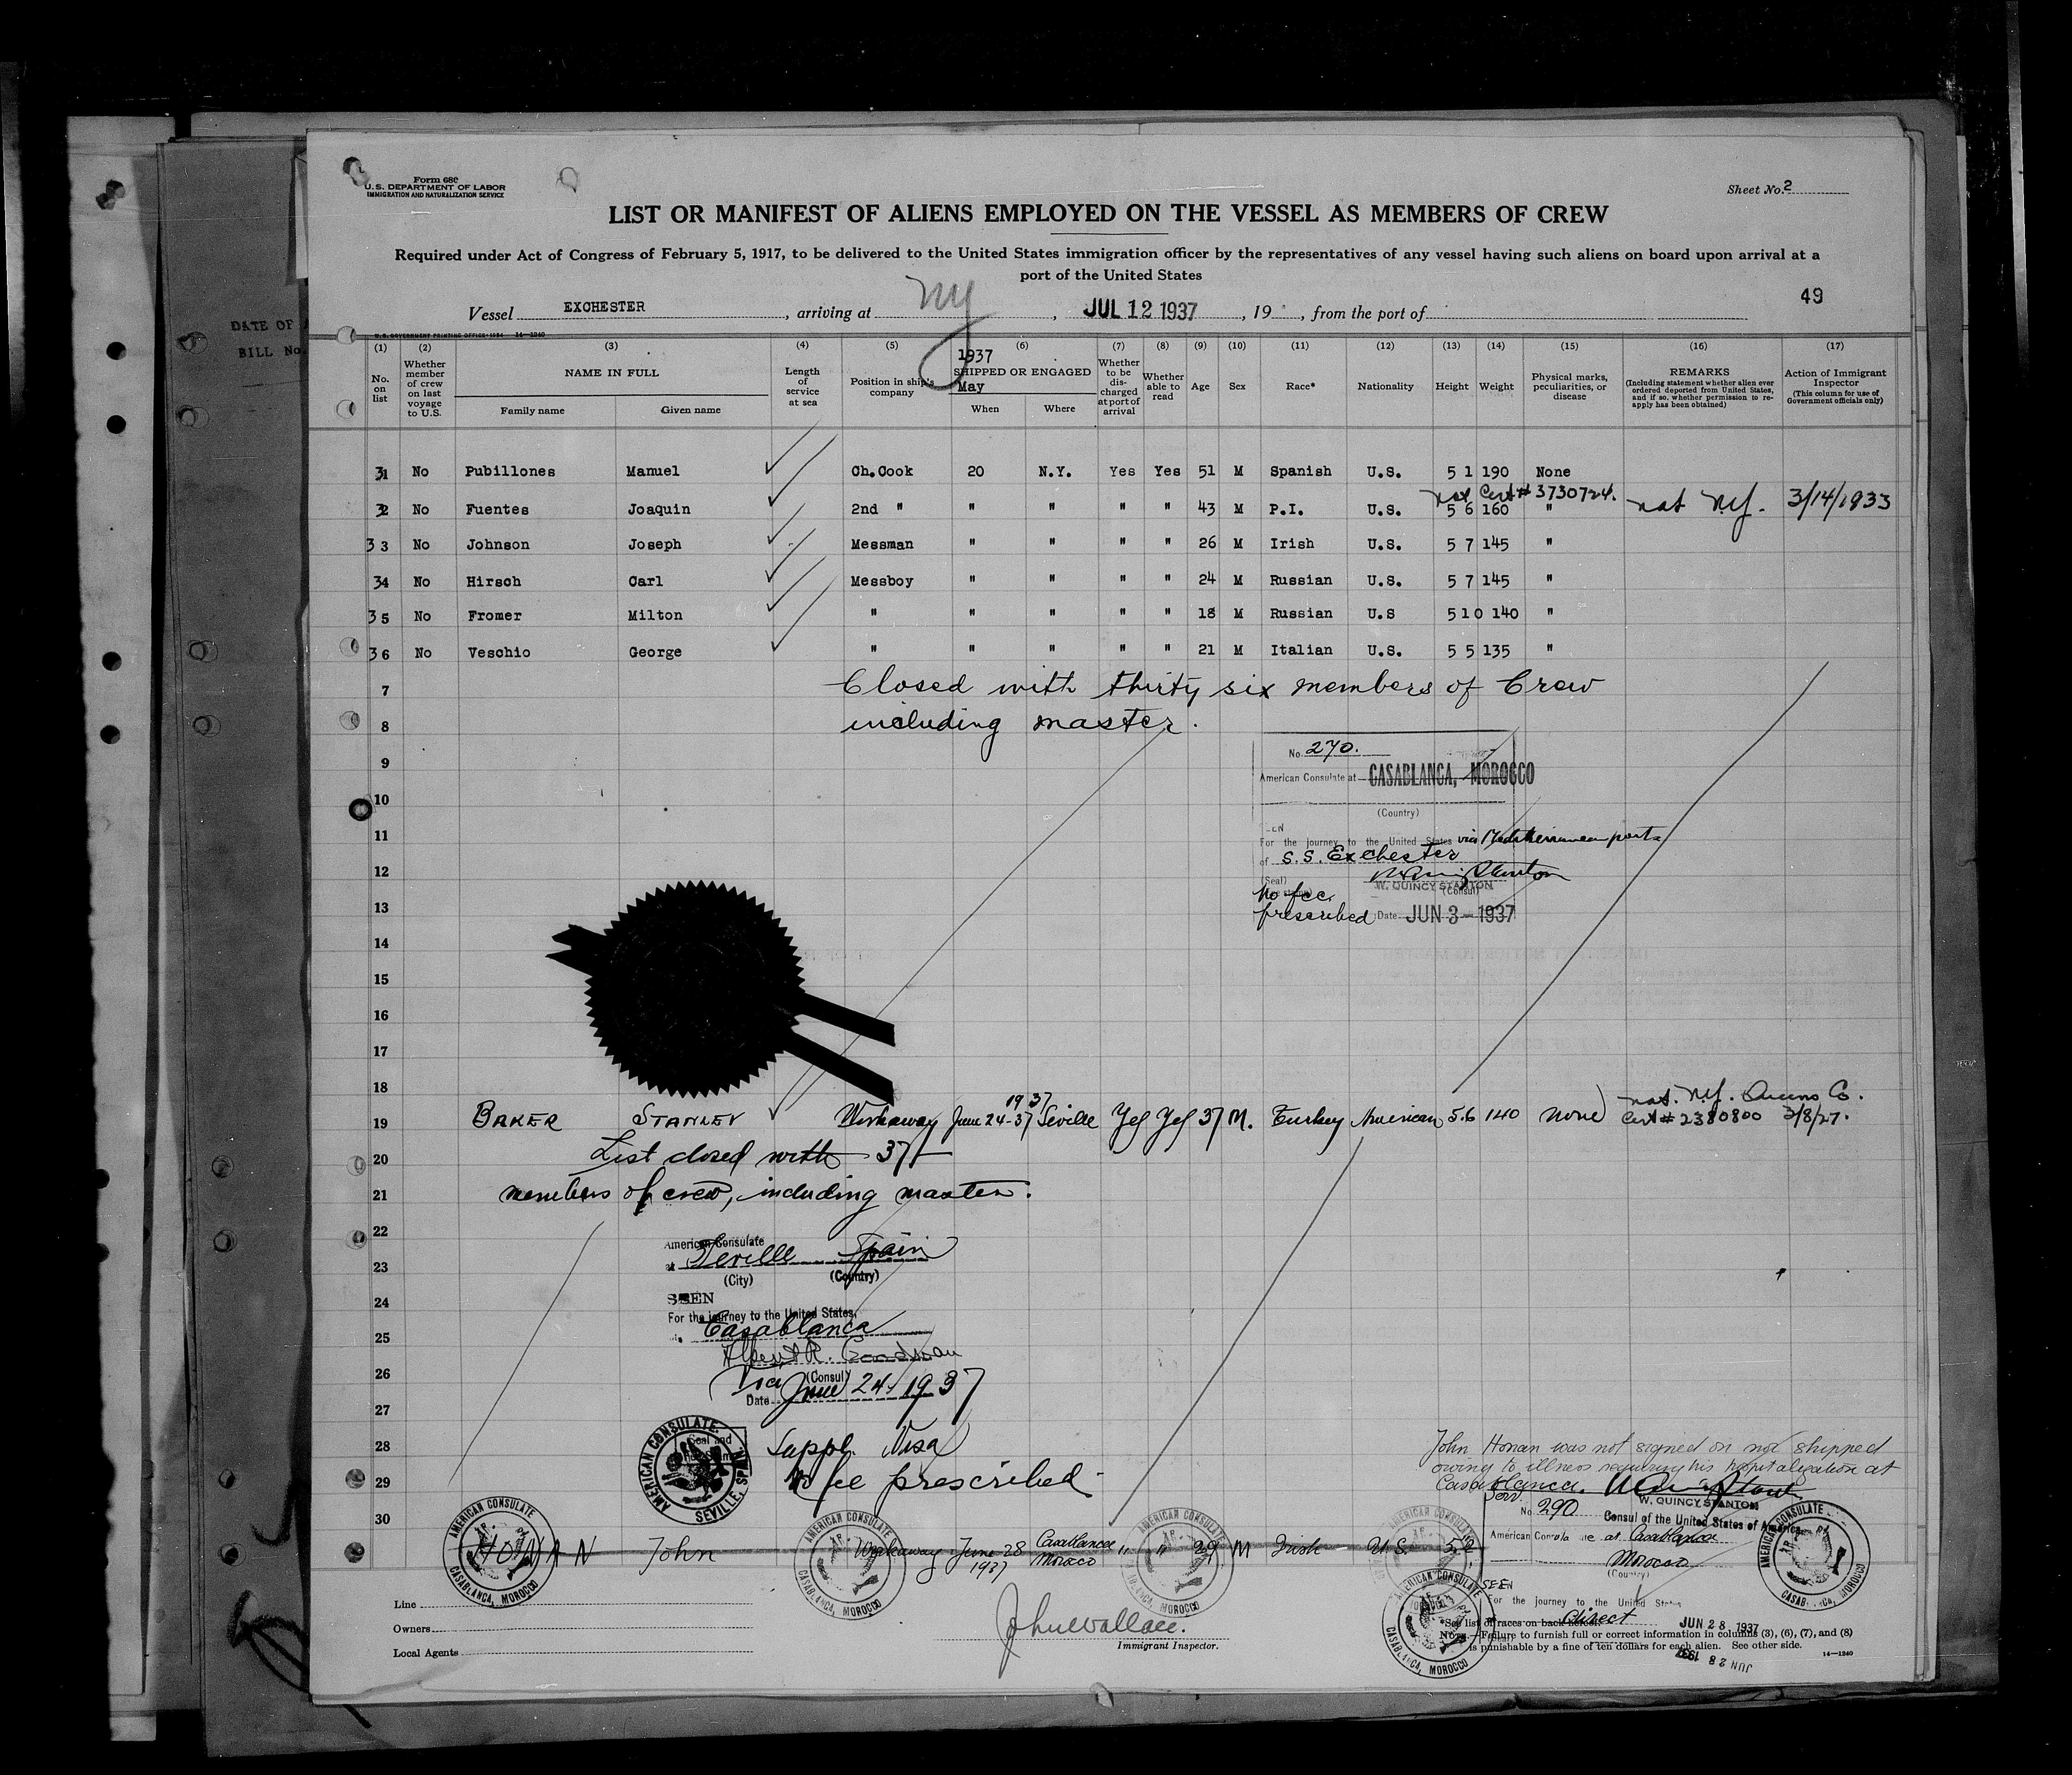 Form 680
U.S. DEPARTMENT OF LABOR
IMMIGRATION AND NATURALIZATION SERVICE
Sheet No. 2
LIST OR MANIFEST OF ALIENS EMPLOYED ON THE VESSEL AS MEMBERS OF CREW
Required under Act of Congress of February 5, 1917, to be delivered to the United States immigration officer by the representatives of any vessel having such aliens on board upon arrival at a
port of the United States
49
Vessel EXCHESTER, arriving at NY, JUL 12 1937, 19 , from the port of
DATE OF
BILL No.
U.S. GOVERNMENT PRINTING OFFICE: 1934 14—1240
(1) (2) (3) (4) (5) (6) (7) (8) (9) (10) (11) (12) (13) (14) (15) (16) (17)
No. on list
Whether member of crew on last voyage to U.S.
NAME IN FULL
Family name
Given name
Length of service at sea
Position in ship's company
1937
SHIPPED OR ENGAGED
May
When
Where
Whether to be discharged at port of arrival
Whether able to read
Age
Sex
Race*
Nationality
Height
Weight
Physical marks, peculiarities, or disease
REMARKS
(Including statement whether alien ever ordered deported from United States, and if so, whether permission to re-apply has been obtained)
Action of Immigrant Inspector
(This column for use of Government officials only)
31 No Pubillones Manuel Ch.Cook 20 N.Y. Yes Yes 51 M Spanish U.S. 5 1 190 None
nat Cert # 3730724.
32 No Fuentes Joaquin 2nd " " " " " 43 M P.I. U.S. 5 6 160 " nat NY. 3/14/1933
33 No Johnson Joseph Messman " " " " 26 M Irish U.S. 5 7 145 "
34 No Hirsch Carl Messboy " " " " 24 M Russian U.S. 5 7 145 "
35 No Fromer Milton " " " " " 18 M Russian U.S 510 140 "
36 No Veschio George " " " " " 21 M Italian U.S. 5 5 135 "
7 Closed with thirty six members of Crew
8 including master.
9
No. 270.
American Consulate at CASABLANCA, MOROCCO
10
(Country)
11
SEEN
For the journey to the United States via Mediterranean ports
of S.S. Exchester
12
(Seal)
W. QUINCY STANTON
(Consul)
No fee
prescribed
13
Date JUN 3 - 1937
14
15
16
17
18
19 BAKER STANLEY Workaway June 24-37 1937 Seville Yes Yes 37 M. Turkey American 5.6 140 none nat. N.Y. Queens Co.
Cert # 2380800 3/8/27.
20 List closed with 37
21 members of crew, including master.
22
American Consulate
at Seville Spain
23
(City) (Country)
24
SEEN
For the journey to the United States
25
Casablanca
26
(Consul)
Via
Date June 24, 1937
27
28 Suppl. Visa
29 No fee prescribed
30
AMERICAN CONSULATE SEVILLE, SPAIN
John Honan was not signed on nor shipped
owing to illness requiring his hospitalization at
Casablanca.
W. QUINCY STANTON
Consul of the United States of America
Serv.
No. 290
American Consulate at Casablanca
Morocco
(Country)
HONAN John Workaway June 28 1937 Casablanca Morocco " " 29 M Irish U.S. 5.2
AMERICAN CONSULATE CASABLANCA, MOROCCO
AMERICAN CONSULATE CASABLANCA, MOROCCO
AMERICAN CONSULATE CASABLANCA, MOROCCO
AMERICAN CONSULATE
AMERICAN CONSULATE CASABLANCA, MOROCCO
AMERICAN CONSULATE CASABLANCA, MOROCCO
SEEN
For the journey to the United States
direct
JUN 28 1937
JUN 28 1937
Line
Owners
Local Agents
John Wallace.
Immigrant Inspector.
*See list of races on back hereof.
NOTE.—Failure to furnish full or correct information in columns (3), (6), (7), and (8)
is punishable by a fine of ten dollars for each alien. See other side.
14—1240